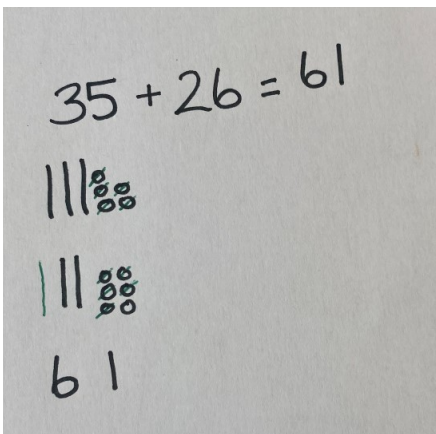 35 + 26 = 61
61